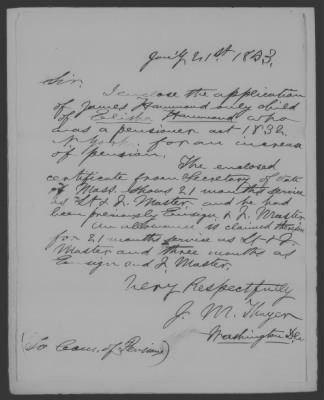 Jan'y 21st 1853.
Sir.
I enclose the application
of James Hammond only child
of Elisha Hammond who
was a pensioner act 1832
N. York. for an increase
of pension.
The enclosed
certificate from Secretary of State
of Mass. shows 21 months service
as Lt & Q. Master. and he had
been previously Ensign & Q. Master
An allowance is claimed therefore
for 21 months service as Lt & Q.
Master and three months as
Ensign and Q. Master.
Very Respectfully
J. M. Thayer
Washington D.C.
(To Com. of Pensions)